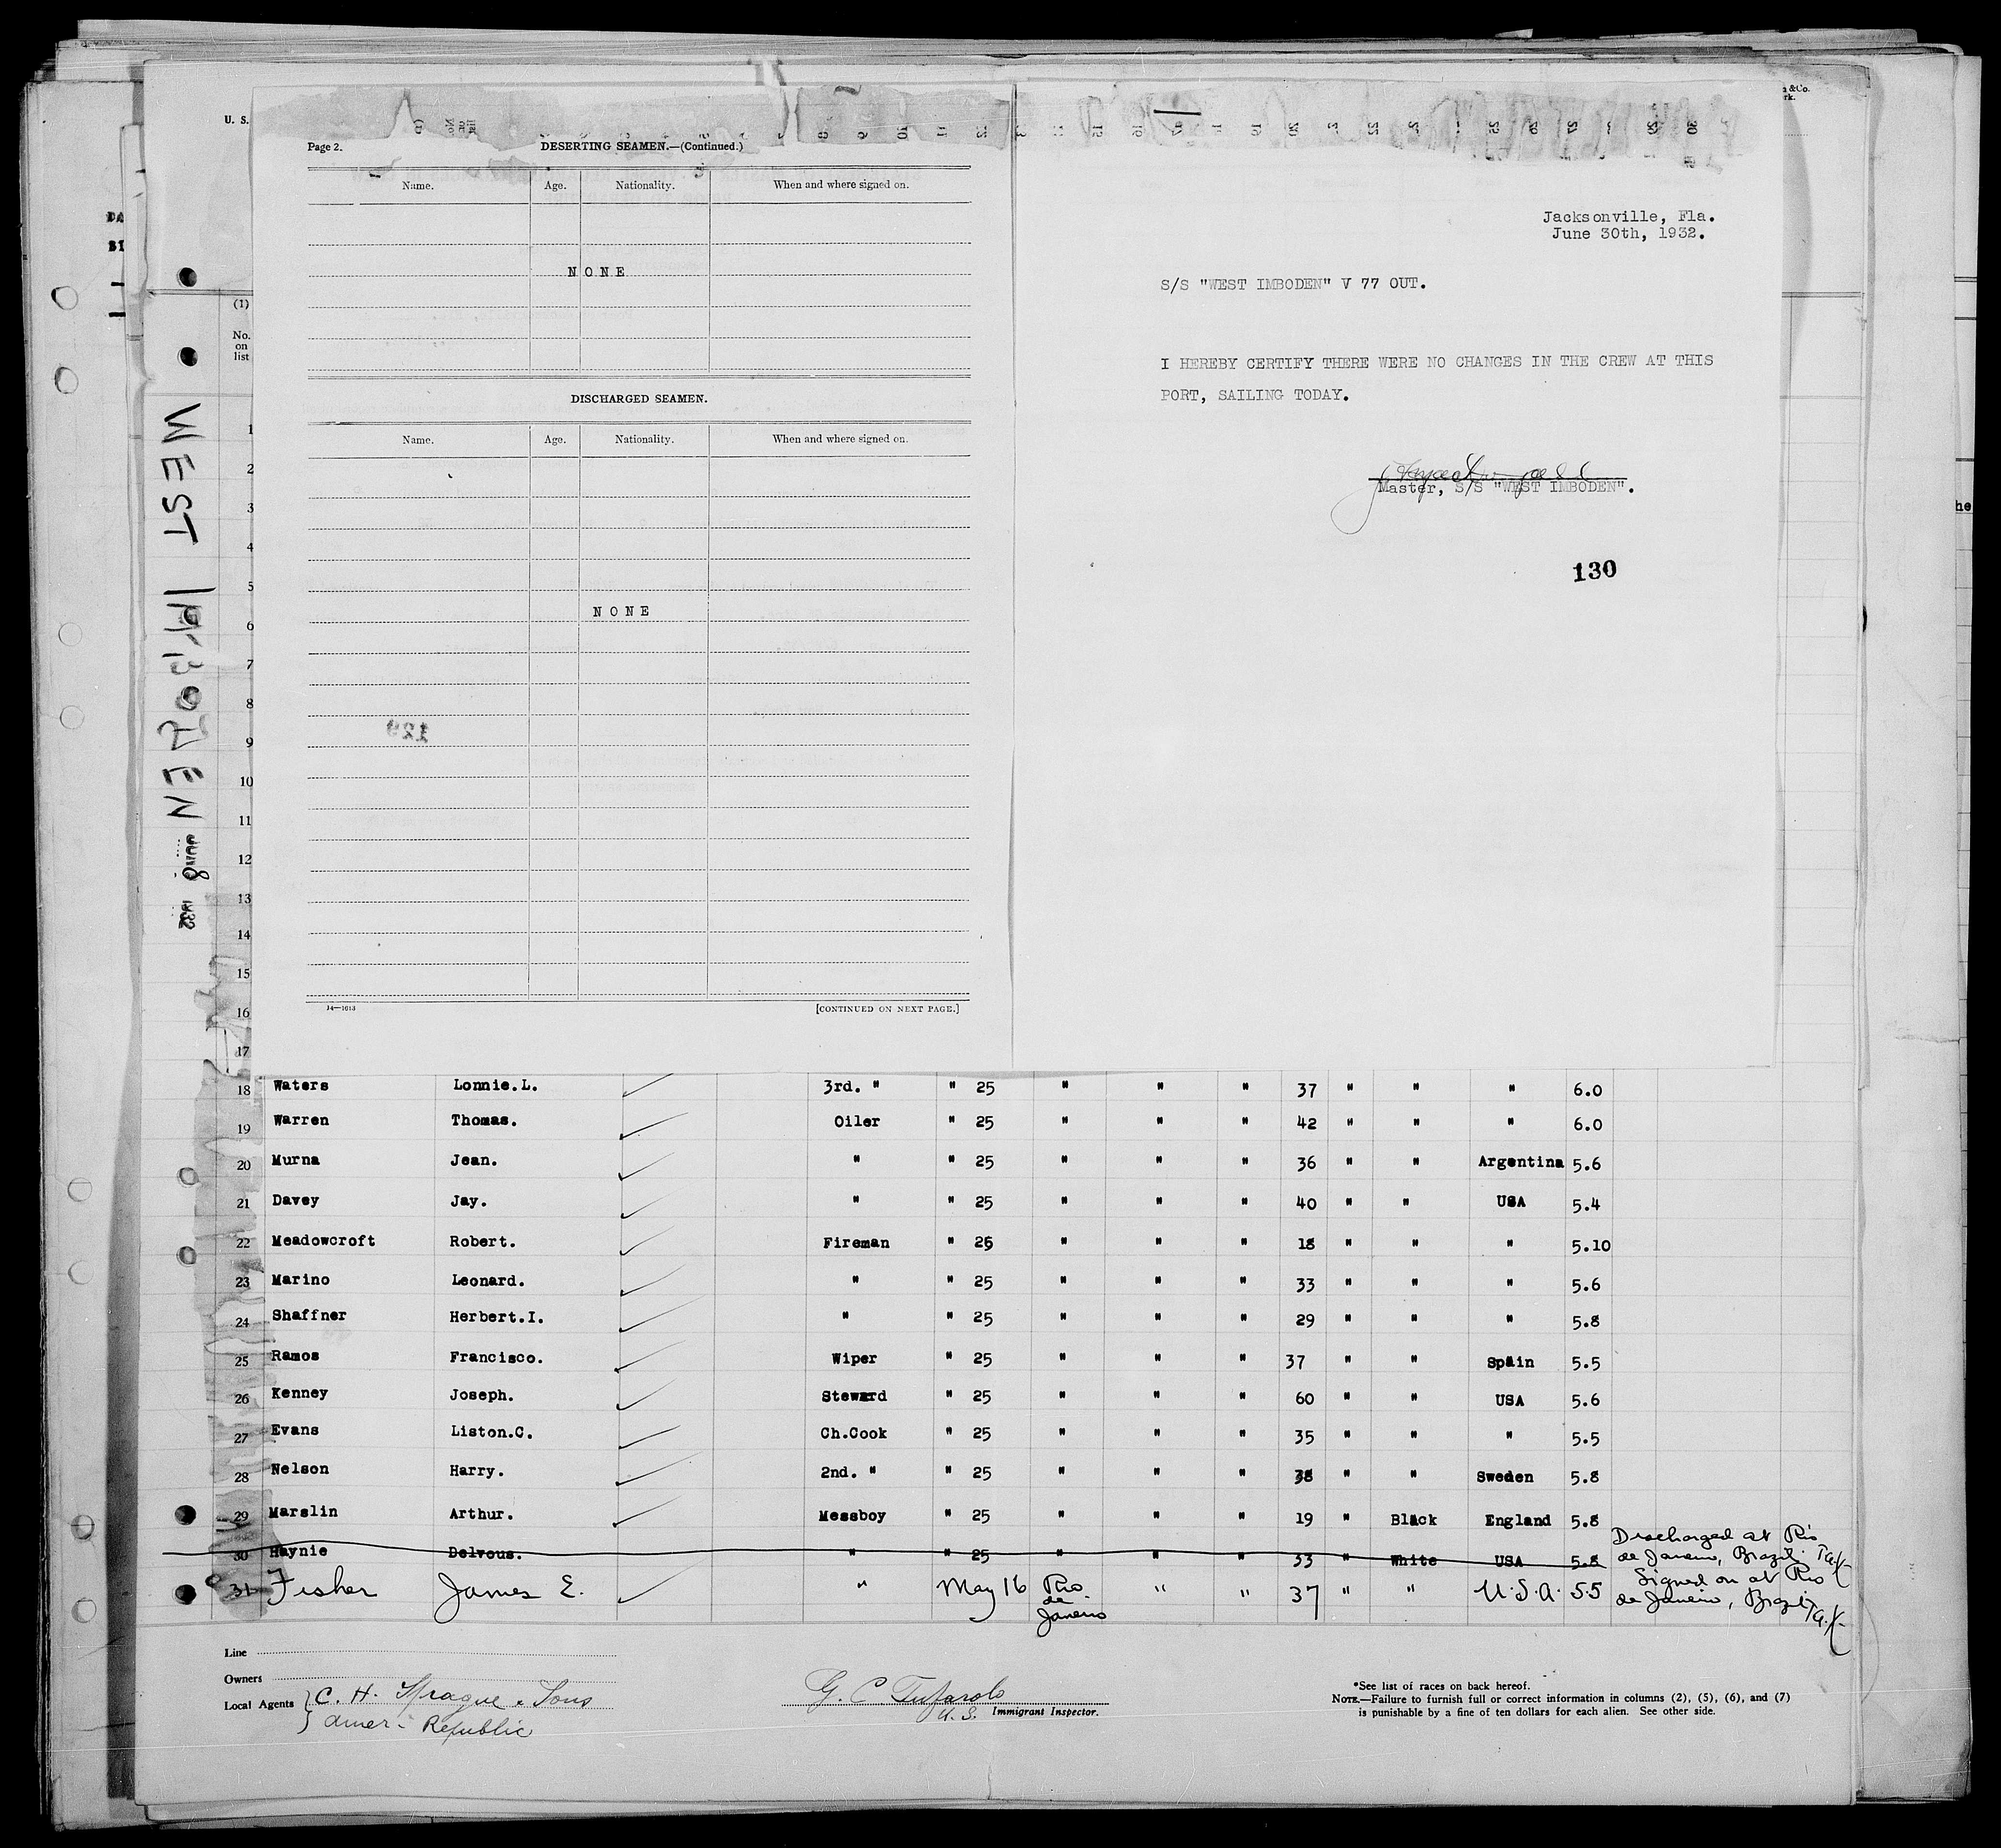 U. S.
& Co.
rk.
Page 2.
DESERTING SEAMEN.—(Continued.)
Name. Age. Nationality. When and where signed on.
NONE
DISCHARGED SEAMEN.
Name. Age. Nationality. When and where signed on.
NONE
129
14—1613
[CONTINUED ON NEXT PAGE.]
Jacksonville, Fla.
June 30th, 1932.
S/S "WEST IMBODEN" V 77 OUT.
I HEREBY CERTIFY THERE WERE NO CHANGES IN THE CREW AT THIS
PORT, SAILING TODAY.
Master, S/S "WEST IMBODEN".
130
WEST IMBODEN
(1)
No.
on
list
1
2
3
4
5
6
7
8
9
10
11
12
13
14
15
16
17
18 Waters Lonnie.L. 3rd. " " 25 " " " 37 " " " 6.0
19 Warren Thomas. Oiler " 25 " " " 42 " " " 6.0
20 Murna Jean. " " 25 " " " 36 " " Argentina 5.6
21 Davey Jay. " " 25 " " " 40 " " USA 5.4
22 Meadowcroft Robert. Fireman " 25 " " " 18 " " " 5.10
23 Marino Leonard. " " 25 " " " 33 " " " 5.6
24 Shaffner Herbert.I. " " 25 " " " 29 " " " 5.8
25 Ramos Francisco. Wiper " 25 " " " 37 " " Spain 5.5
26 Kenney Joseph. Steward " 25 " " " 60 " " USA 5.6
27 Evans Liston.C. Ch.Cook " 25 " " " 35 " " " 5.5
28 Nelson Harry. 2nd. " " 25 " " " 38 " " Sweden 5.8
29 Marslin Arthur. Messboy " 25 " " " 19 " Black England 5.8
30 Haynie Delvous. " " 25 " " " 33 " White USA 5.8 Discharged at Rio de Janeiro, Brazil.
31 Fisher James E. " May 16 Rio de Janeiro " " 37 " " U.S.A. 5.5 Signed on at Rio de Janeiro, Brazil
Line
Owners
Local Agents C. H. Sprague & Sons
Amer. Republic
G. C. Tufarolo
U. S. Immigrant Inspector.
*See list of races on back hereof.
NOTE.—Failure to furnish full or correct information in columns (2), (5), (6), and (7)
is punishable by a fine of ten dollars for each alien. See other side.